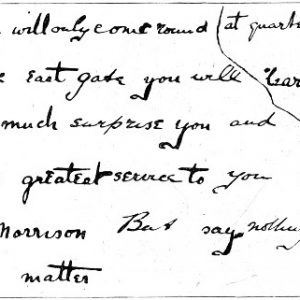 will only come round at quarte
east gate you will lear
much surprise you and
greatest service to you
Morrison But say nothing
matter